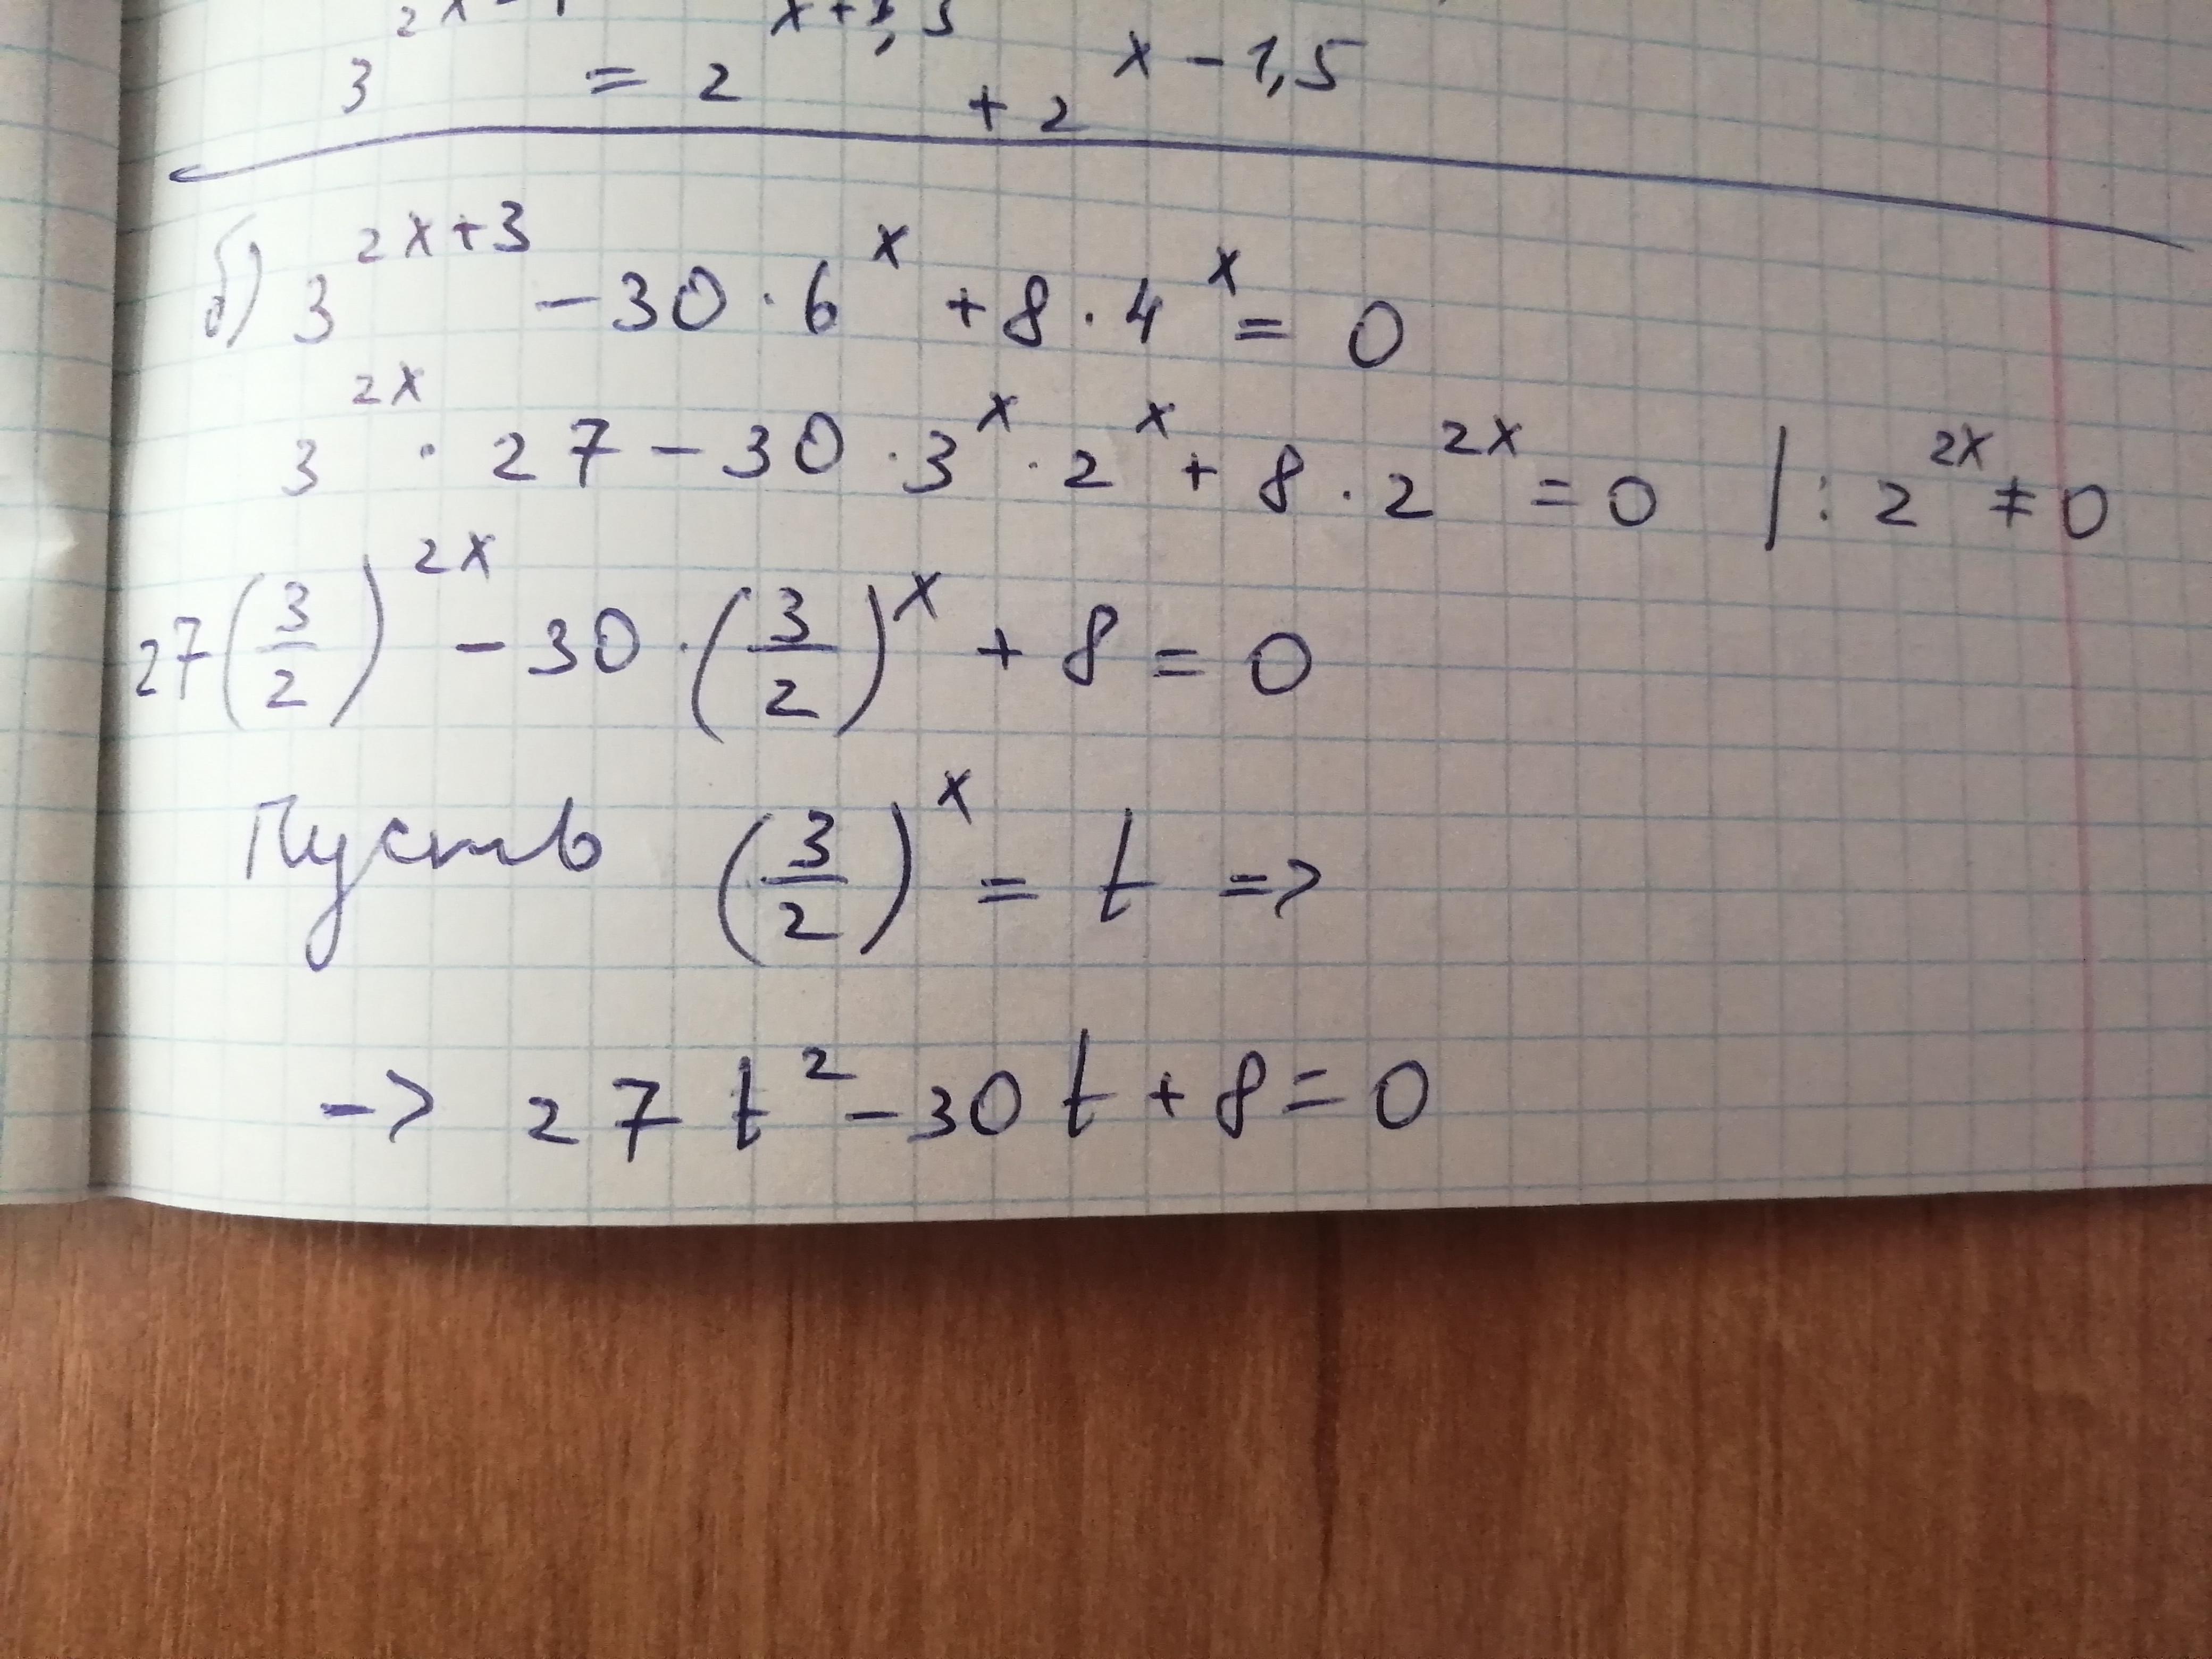 3^{2x-1} = 2^{x+3,5} + 2^{x-1,5}
б) 3^{2x+3} - 30 · 6^x + 8 · 4^x = 0
3^{2x} · 27 - 30 · 3^x · 2^x + 8 · 2^{2x} = 0 | : 2^{2x} ≠ 0
27(3/2)^{2x} - 30 · (3/2)^x + 8 = 0
Пусть (3/2)^x = t =>
-> 27 t^2 - 30 t + 8 = 0